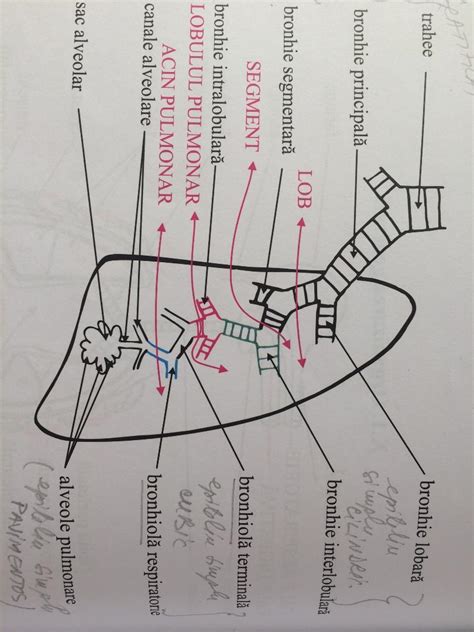 trahee
bronhie principală
bronhie segmentară
bronhie intralobulară
canale alveolare
sac alveolar
LOB
SEGMENT
LOBULUL PULMONAR
ACIN PULMONAR
bronhie lobară
bronhie interlobulară
bronhiolă terminală
bronhiolă respiratorie
alveole pulmonare
epiteliu
simplu
CILINDRIC
epiteliu simplu
CUBIC
(epiteliu simplu
PAVIMENTOS)